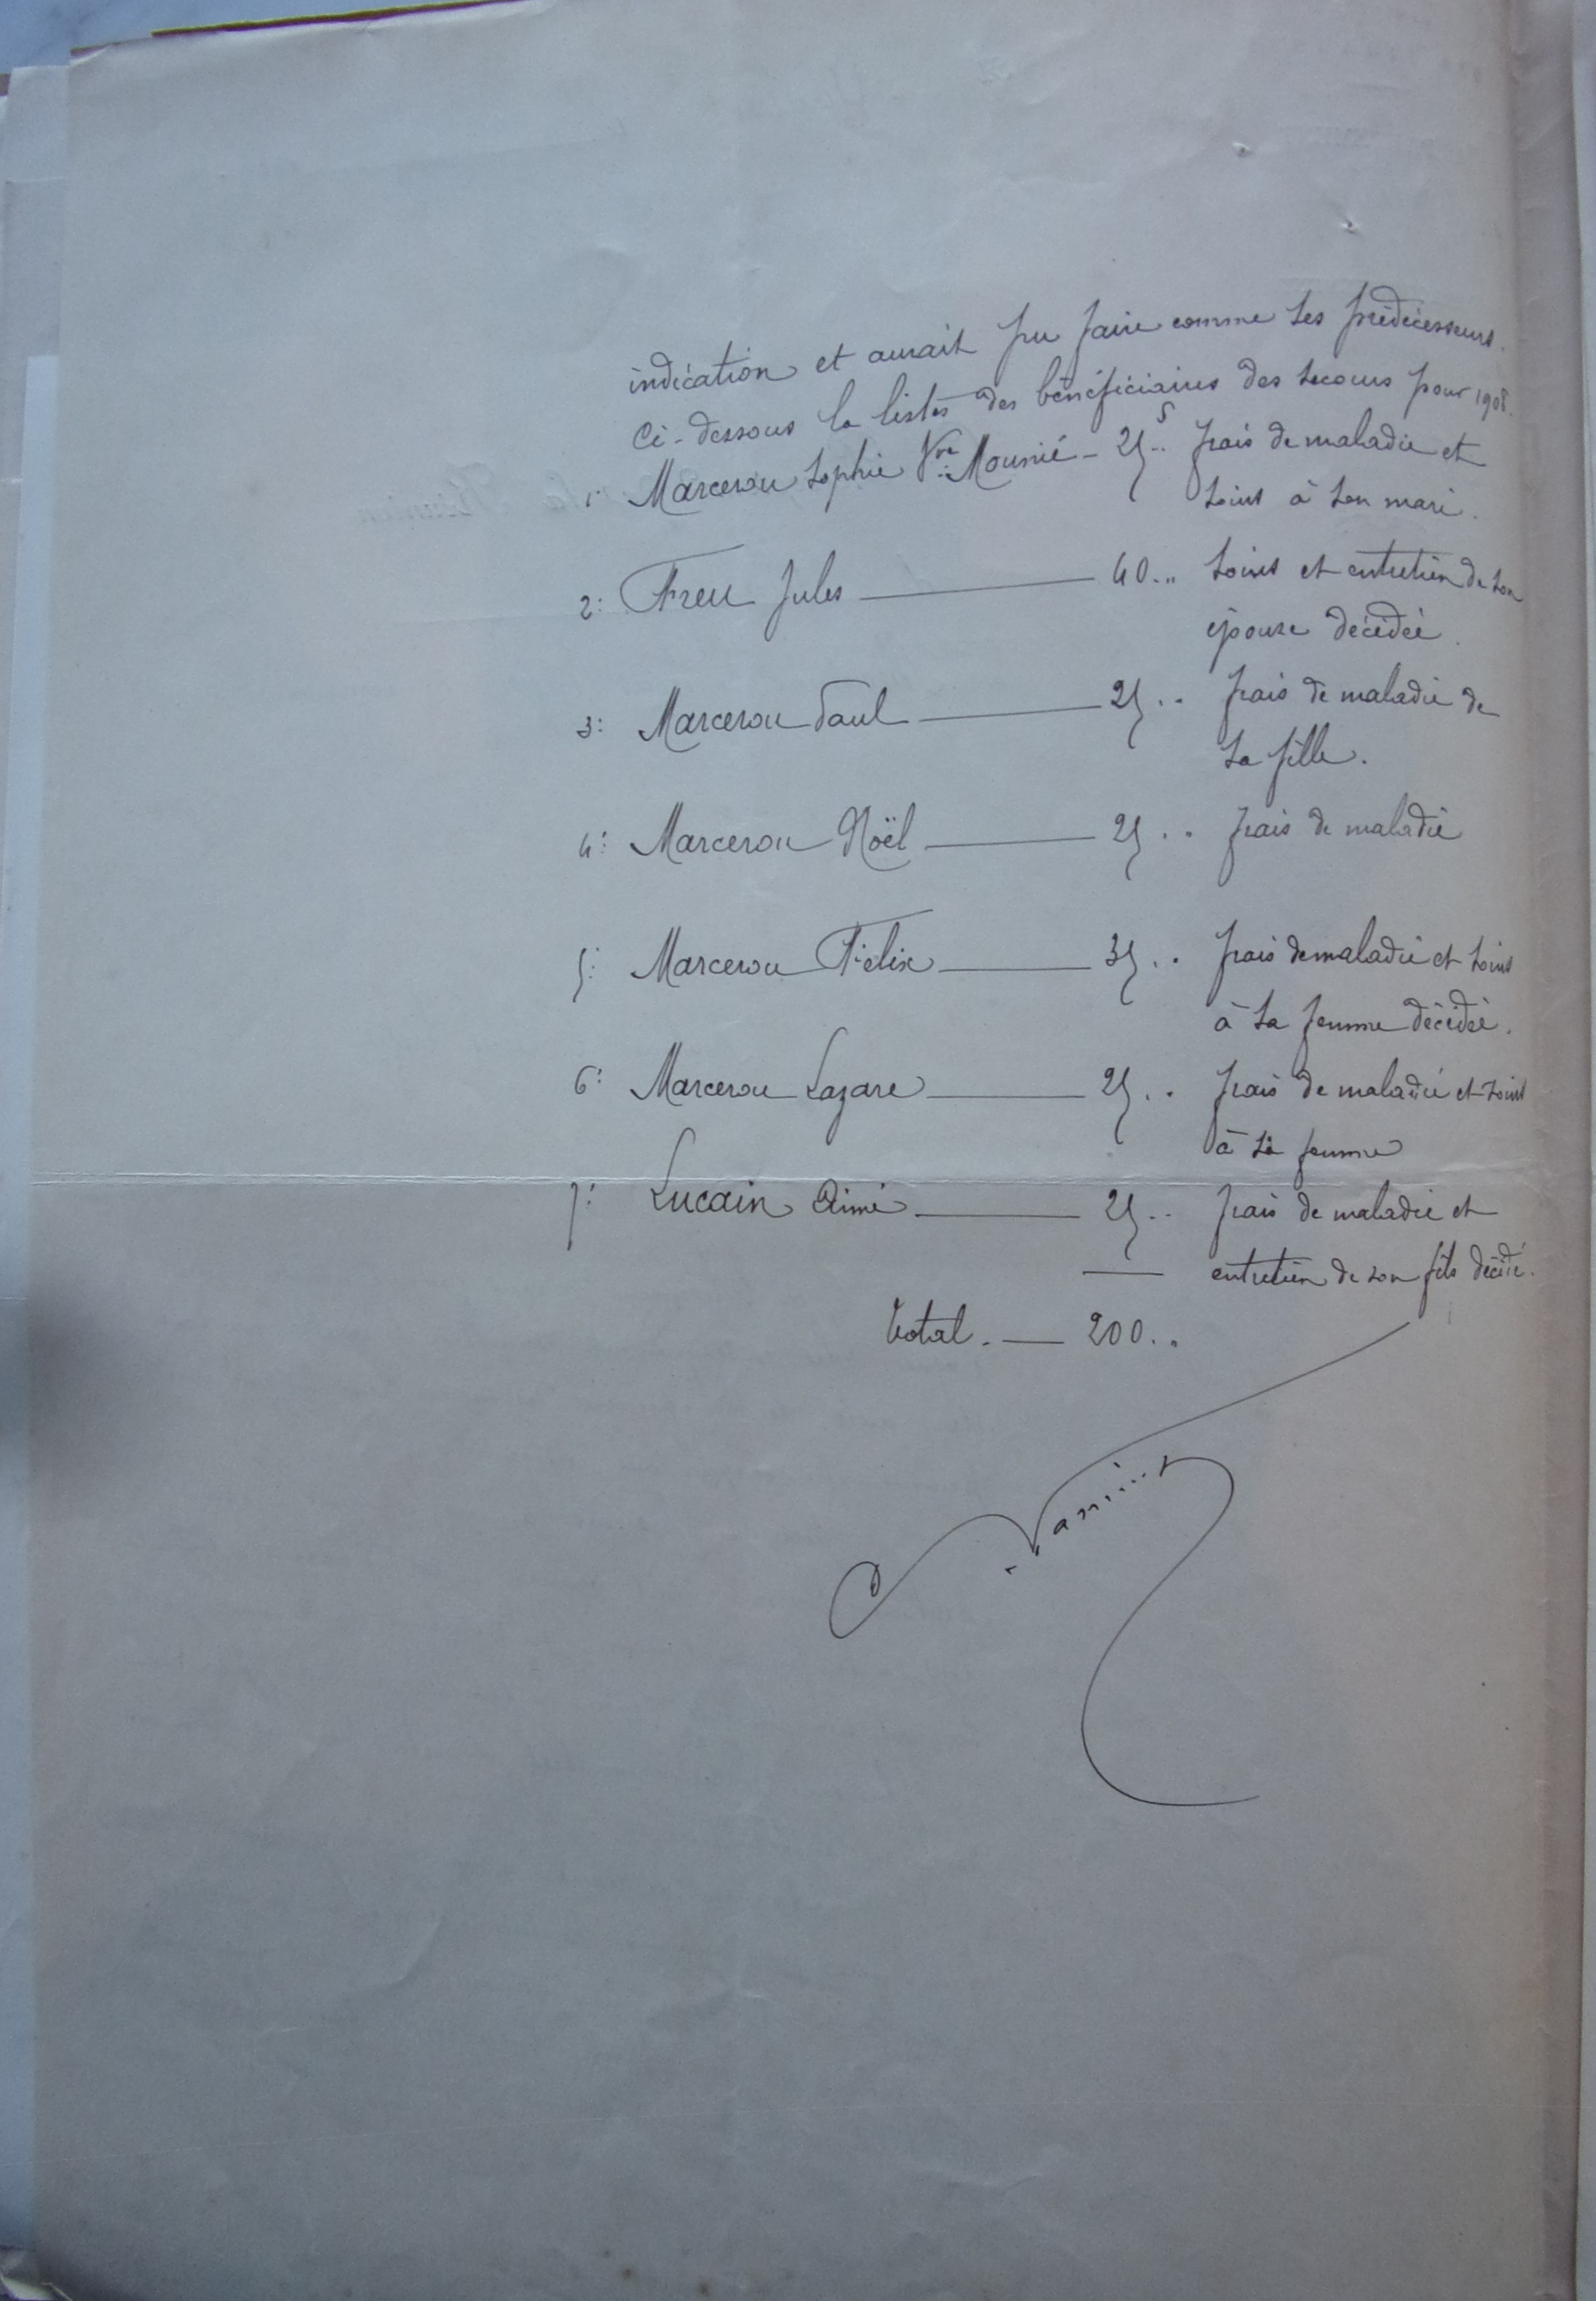 indication et aurait pu faire comme ses prédécesseurs.
Ci-dessous la liste des bénéficiaires des secours pour 1908.
1: Marcerou Sophie Vve Mounié - 25 f .. frais de maladie et
soins à son mari.
2: Freu Jules — 40 .. soins et entretien de son
épouse décédée.
3: Marcerou Paul — 25 .. frais de maladie de
sa fille.
4: Marcerou Noël — 25 .. frais de maladie
5: Marcerou Félix — 35 .. frais de maladie et soins
à sa femme décédée.
6: Marcerou Lazare — 25 .. frais de maladie et soins
à sa femme
7: Lucain Aimé — 25 .. frais de maladie et
entretien de son fils décédé.
Total. — 200 ..